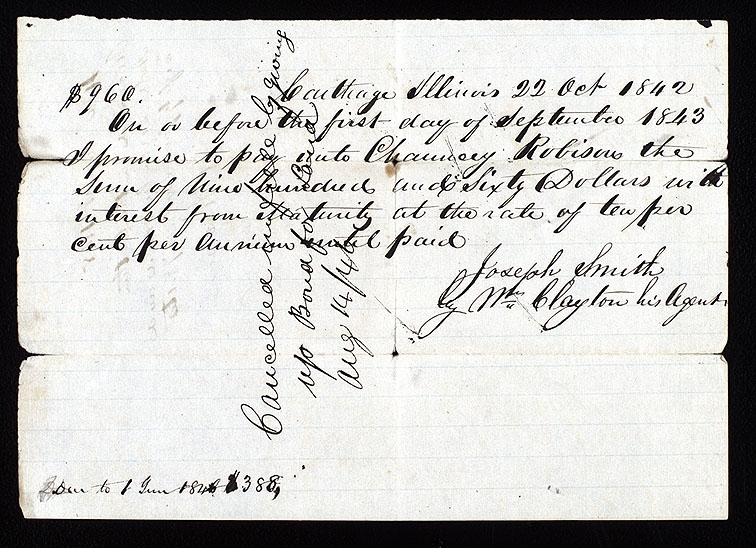 $960. Carthage Illinois 22 Oct 1842
On or before the first day of September 1843
I promise to pay unto Chauncey Robison the
Sum of Nine hundred and Sixty Dollars with
interest from Maturity at the rate of ten per
cent per Annum until paid
Joseph Smith
by Wm Clayton his Agent
Cancelled by giving
up Bond for Land
Aug 14/46
to 1 $388,